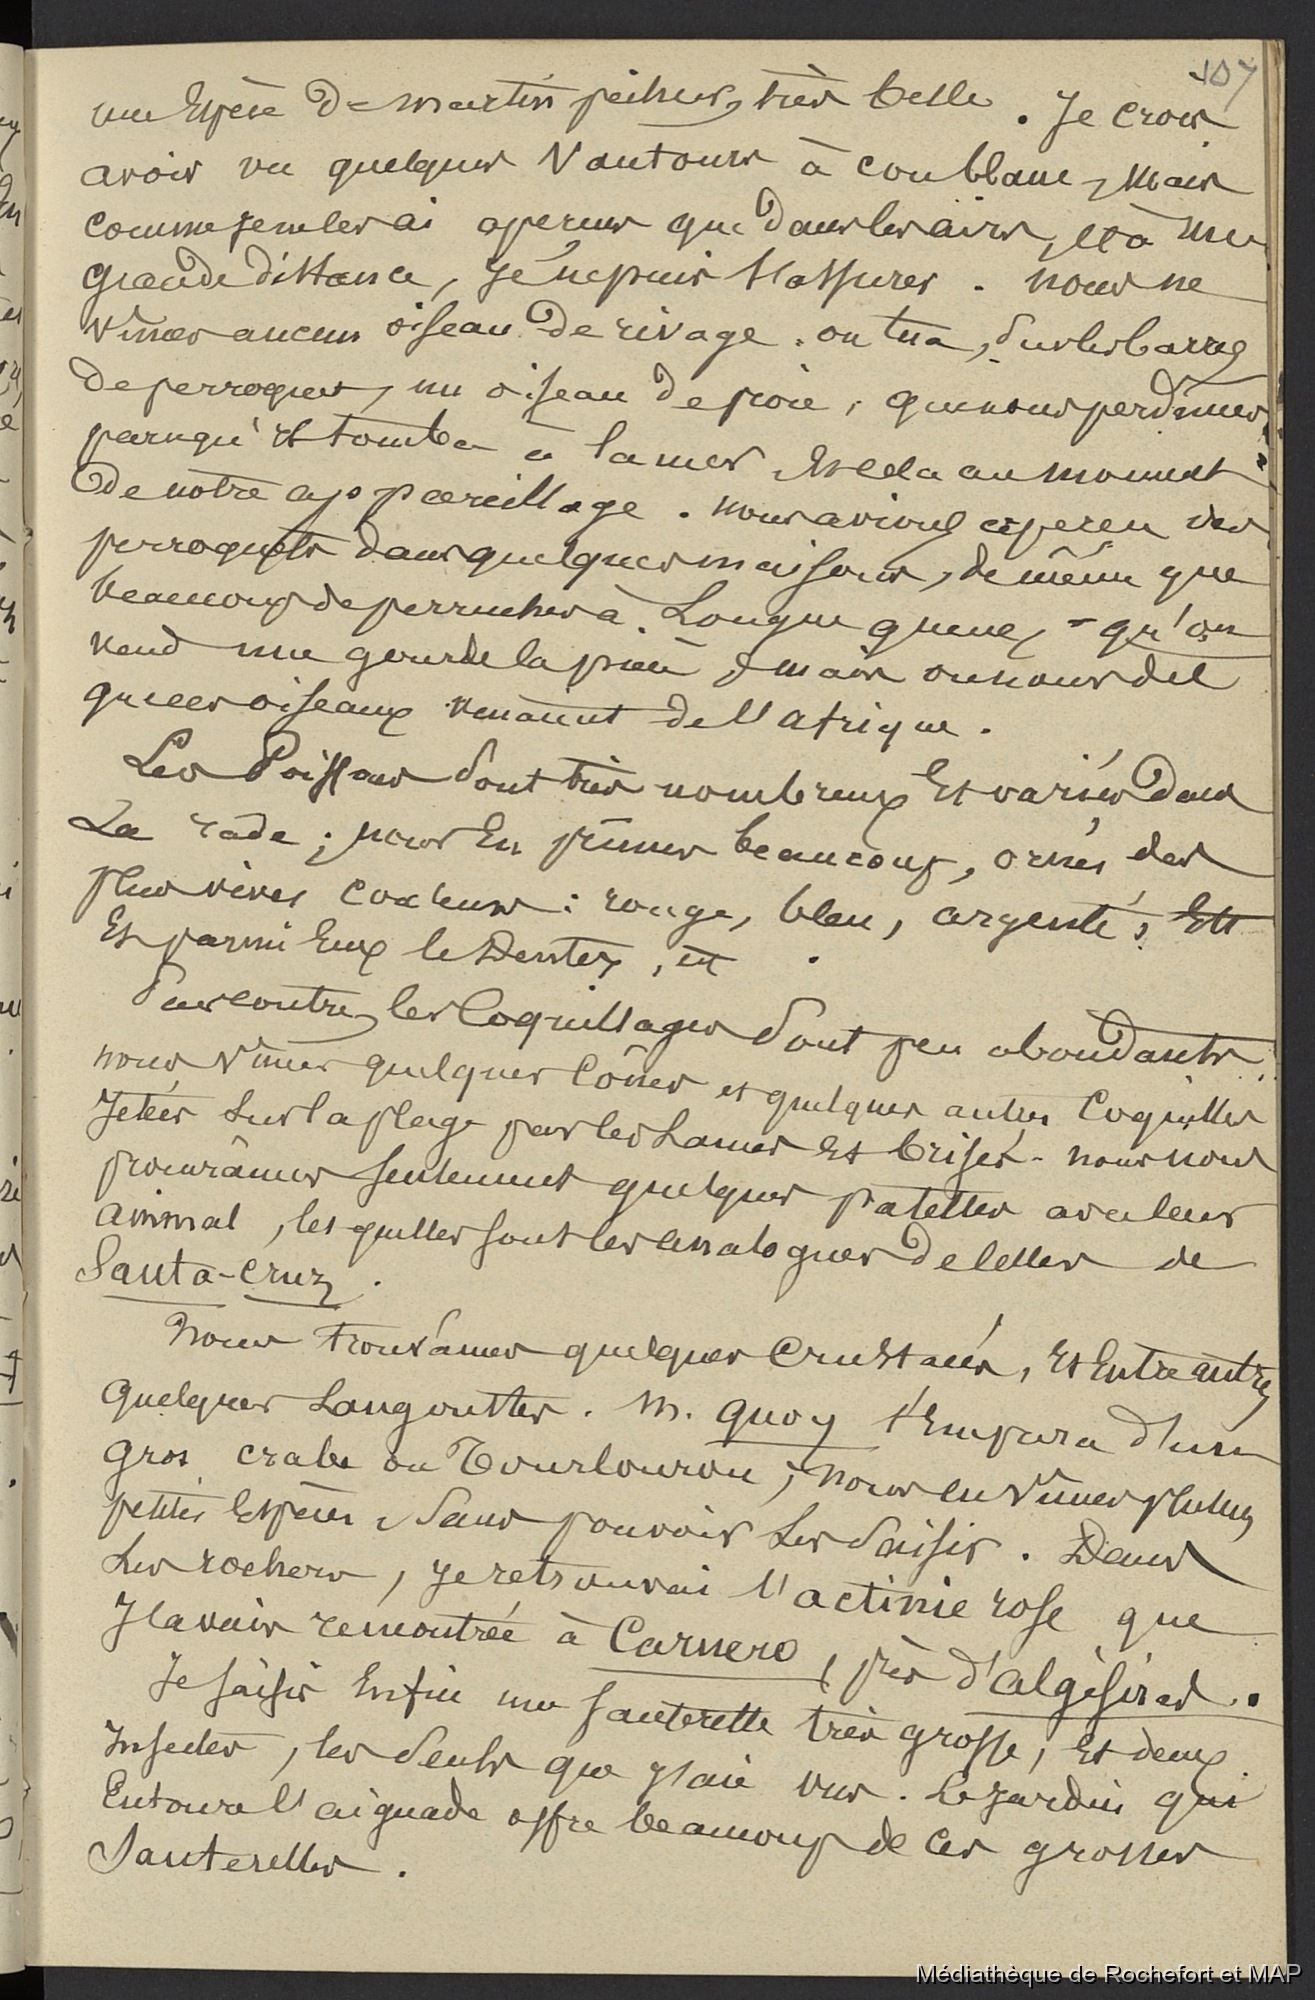 107
une Espèce de martin pêcheur, très belle. Je crois
avoir vu quelques Vautours à cou blanc, mais
comme je ne les ai aperçus que dans les airs, et à une
grande distance, je ne puis l'assurer. nous ne
vîmes aucun oiseau de rivage. on tua, sur les barres
de perroquet, un oiseau de proie, que nous perdîmes
parce qu'il tomba à la mer, Et cela au moment
de notre appareillage. nous avions aperçu des
perroquets dans quelques maisons, de même que
beaucoup de perruches à Longue queue, - qu'on
vend une gourde la pièce, mais on nous dit
que ces oiseaux venaient de l'afrique.
Les Poissons sont très nombreux Et variés dans
La rade; nous En prîmes beaucoup, ornés des
plus vives couleurs: rouge, bleu, argenté,
Et parmi Eux le Dentex, etc.
Par contre, les Coquillages sont peu abondants.
nous vîmes quelques Cônes et quelques autres Coquilles
Jetées sur la plage par les Lames Et brisés. nous nous
procurâmes seulement quelques patelles avec leur
animal, lesquelles sont les analogues de celles de
Santa-Cruz.
Nous trouvâmes quelques Crustacés, Et Entre autres
quelques Langoustes. M. Quoy s'Empara d'un
gros crabe ou Tourlourou; nous en vîmes plusieurs
petites Espèces, sans pouvoir Les saisir. Dans
Les rochers, je retrouvai l'actinie rose que
J'avais rencontrée à Carnero, près d'algésiras.
Je saisis Enfin une sauterelle très grosse, Et deux
Insectes, les seuls que j'aie vus. Le Jardin qui
Entoure l'aiguade offre beaucoup de ces grosses
Sauterelles.
Médiathèque de Rochefort et MAP